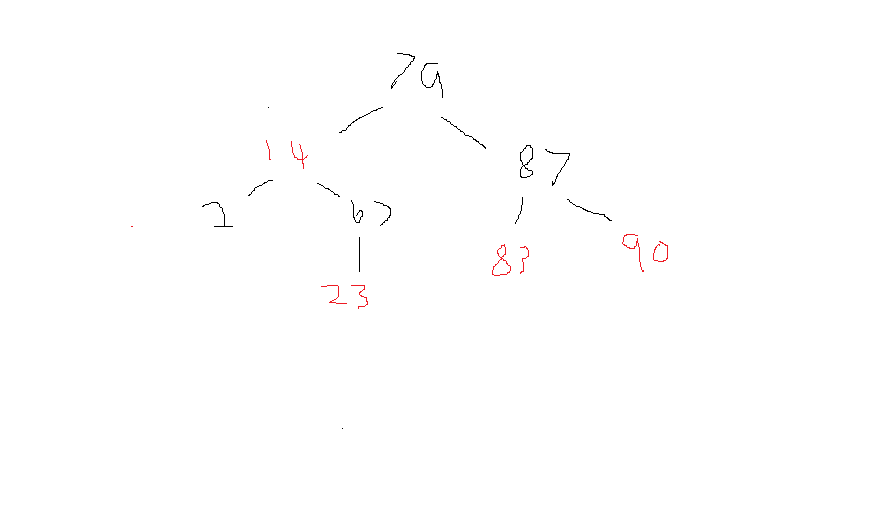 79
14
87
2
67
83
90
23